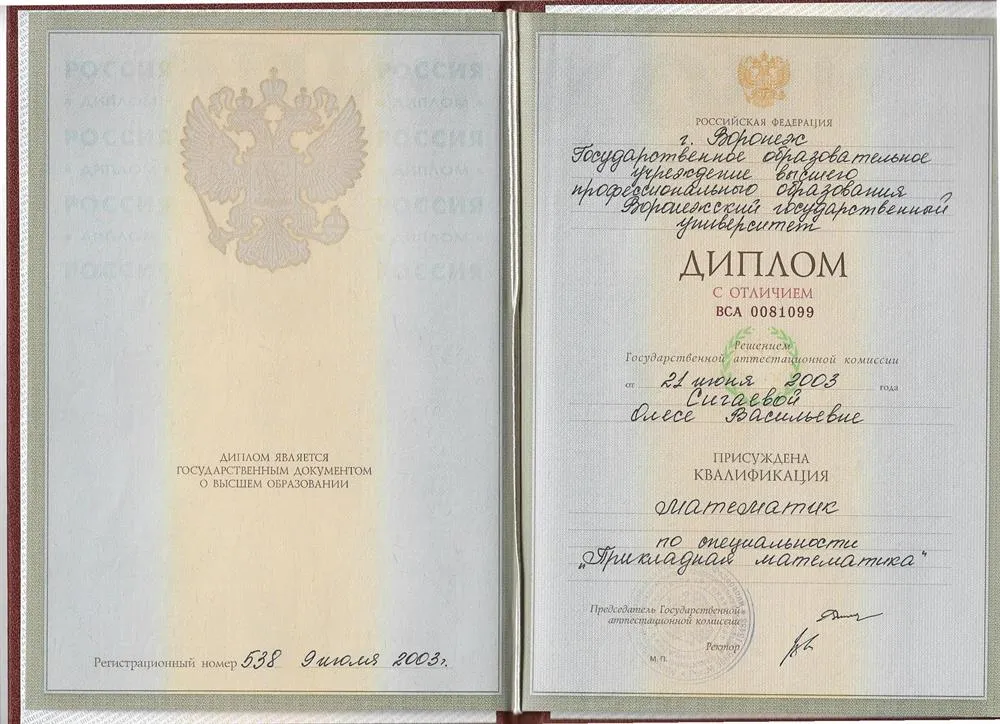 РОССИЯ РОССИЯ
РОССИЯ РОССИЯ
РОССИЯ РОССИЯ
РОССИЯ РОССИЯ
ДИПЛОМ ЯВЛЯЕТСЯ
ГОСУДАРСТВЕННЫМ ДОКУМЕНТОМ
О ВЫСШЕМ ОБРАЗОВАНИИ
Регистрационный номер 538 9 июля 2003г.
РОССИЙСКАЯ ФЕДЕРАЦИЯ
г. Воронеж
Государственное образовательное
учреждение высшего
профессионального образования
Воронежский государственный
университет
ДИПЛОМ
С ОТЛИЧИЕМ
ВСА 0081099
Решением
Государственной аттестационной комиссии
от 21 июня 2003 года
Сигаевой
Олесе Васильевне
ПРИСУЖДЕНА
КВАЛИФИКАЦИЯ
математик
по специальности
„Прикладная математика"
Председатель Государственной
аттестационной комиссии
Ректор
М. П.